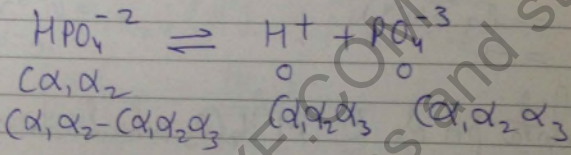 HPO₄⁻² ⇌ H⁺ + PO₄⁻³
Cα₁α₂ 0 0
Cα₁α₂-Cα₁α₂α₃ Cα₁α₂α₃ Cα₁α₂α₃